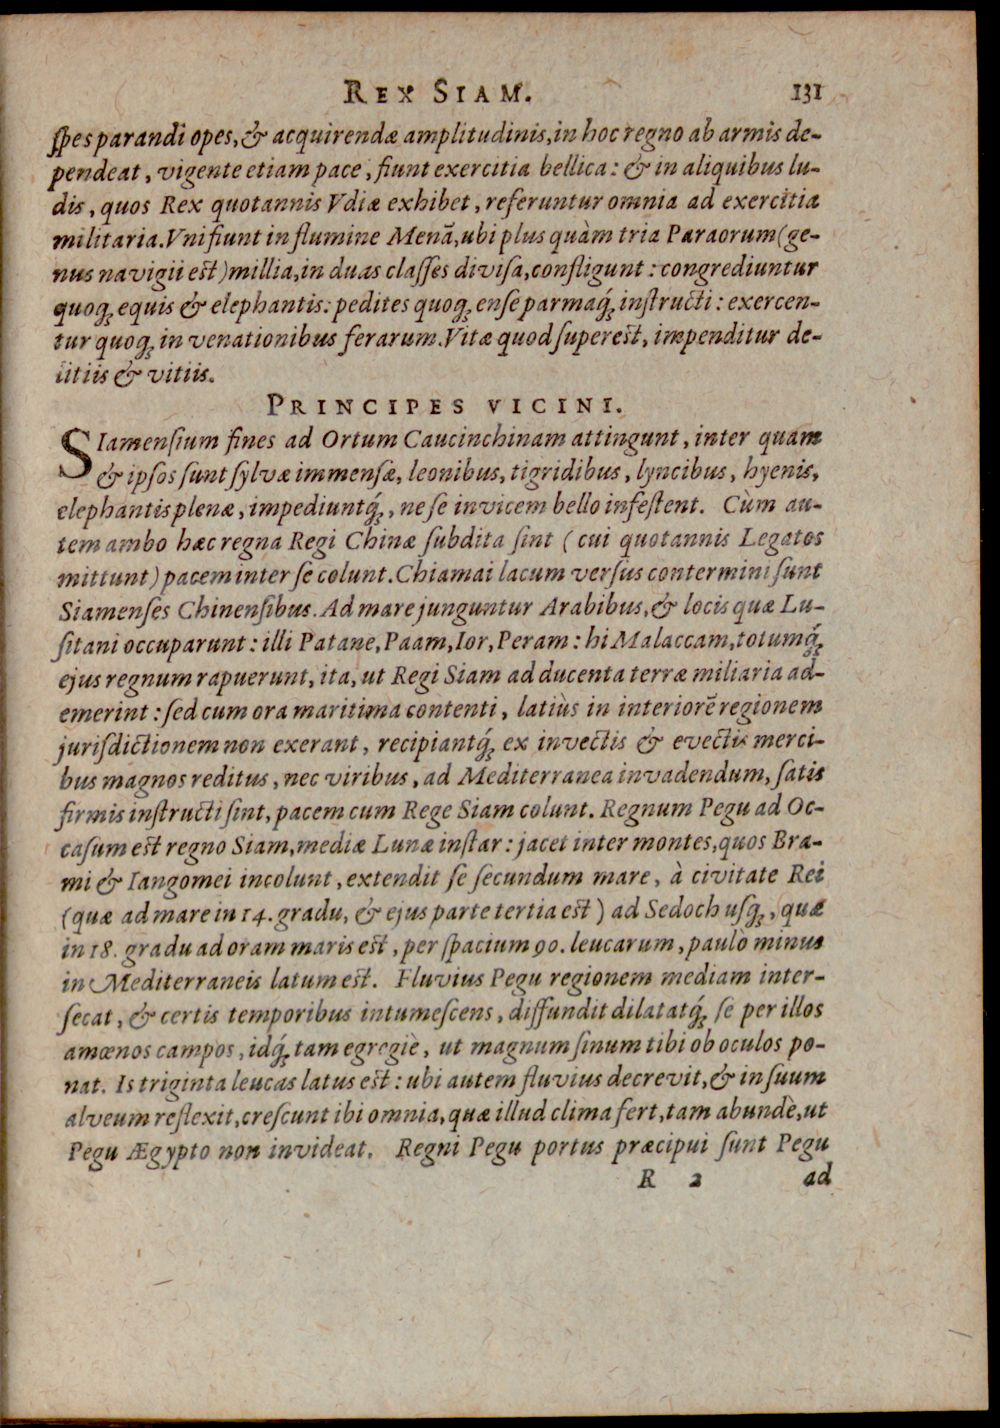 REX SIAM. 131
ſpes parandi opes, & acquirendæ amplitudinis, in hoc regno ab armis de-
pendeat, vigente etiam pace, fiunt exercitia bellica: & in aliquibus lu-
dis, quos Rex quotannis Vdiæ exhibet, referuntur omnia ad exercitia
militaria. Vni fiunt in flumine Menã, ubi plus quàm tria Paraorum (ge-
nus navigii est) millia, in duas claſſes diviſa, confligunt: congrediuntur
quoq; equis & elephantis: pedites quoq; enſe parmaq́; inſtructi: exercen-
tur quoq; in venationibus ferarum. Vitæ quod ſupereſt, impenditur de-
litiis & vitiis.
PRINCIPES VICINI.
SIamenſium fines ad Ortum Caucinchinam attingunt, inter quam
& ipſos ſunt ſylvæ immenſæ, leonibus, tigridibus, lyncibus, hyenis,
elephantis plenæ, impediuntq́;, ne ſe invicem bello infeſtent. Cùm au-
tem ambo hæc regna Regi Chinæ ſubdita ſint (cui quotannis Legatos
mittunt) pacem inter ſe colunt. Chiamai lacum verſus contermini ſunt
Siamenſes Chinenſibus. Ad mare junguntur Arabibus, & locis quæ Lu-
ſitani occuparunt: illi Patane, Paam, Ior, Peram: hi Malaccam, totumq́;
ejus regnum rapuerunt, ita, ut Regi Siam ad ducenta terræ miliaria ad-
emerint: ſed cum ora maritima contenti, latiùs in interiorẽ regionem
juriſdictionem non exerant, recipiantq́; ex invectis & evectis merci-
bus magnos reditus, nec viribus, ad Mediterranea invadendum, ſatis
firmis inſtructi ſint, pacem cum Rege Siam colunt. Regnum Pegu ad Oc-
caſum est regno Siam, mediæ Lunæ inſtar: jacet inter montes, quos Bra-
mi & Iangomei incolunt, extendit ſe ſecundum mare, à civitate Rei
(quæ ad mare in 14. gradu, & ejus parte tertia est) ad Sedoch uſq;, quæ
in 18. gradu ad oram maris est, per ſpacium 90. leucarum, paulò minus
in Mediterraneis latum est. Fluvius Pegu regionem mediam inter-
ſecat, & certis temporibus intumeſcens, diffundit dilatatq́; ſe per illos
amœnos campos, idq́; tam egregiè, ut magnum ſinum tibi ob oculos po-
nat. Is triginta leucas latus est: ubi autem fluvius decrevit, & in ſuum
alveum reflexit, creſcunt ibi omnia, quæ illud clima fert, tam abundè, ut
Pegu Ægypto non invideat. Regni Pegu portus præcipui ſunt Pegu
R 2 ad